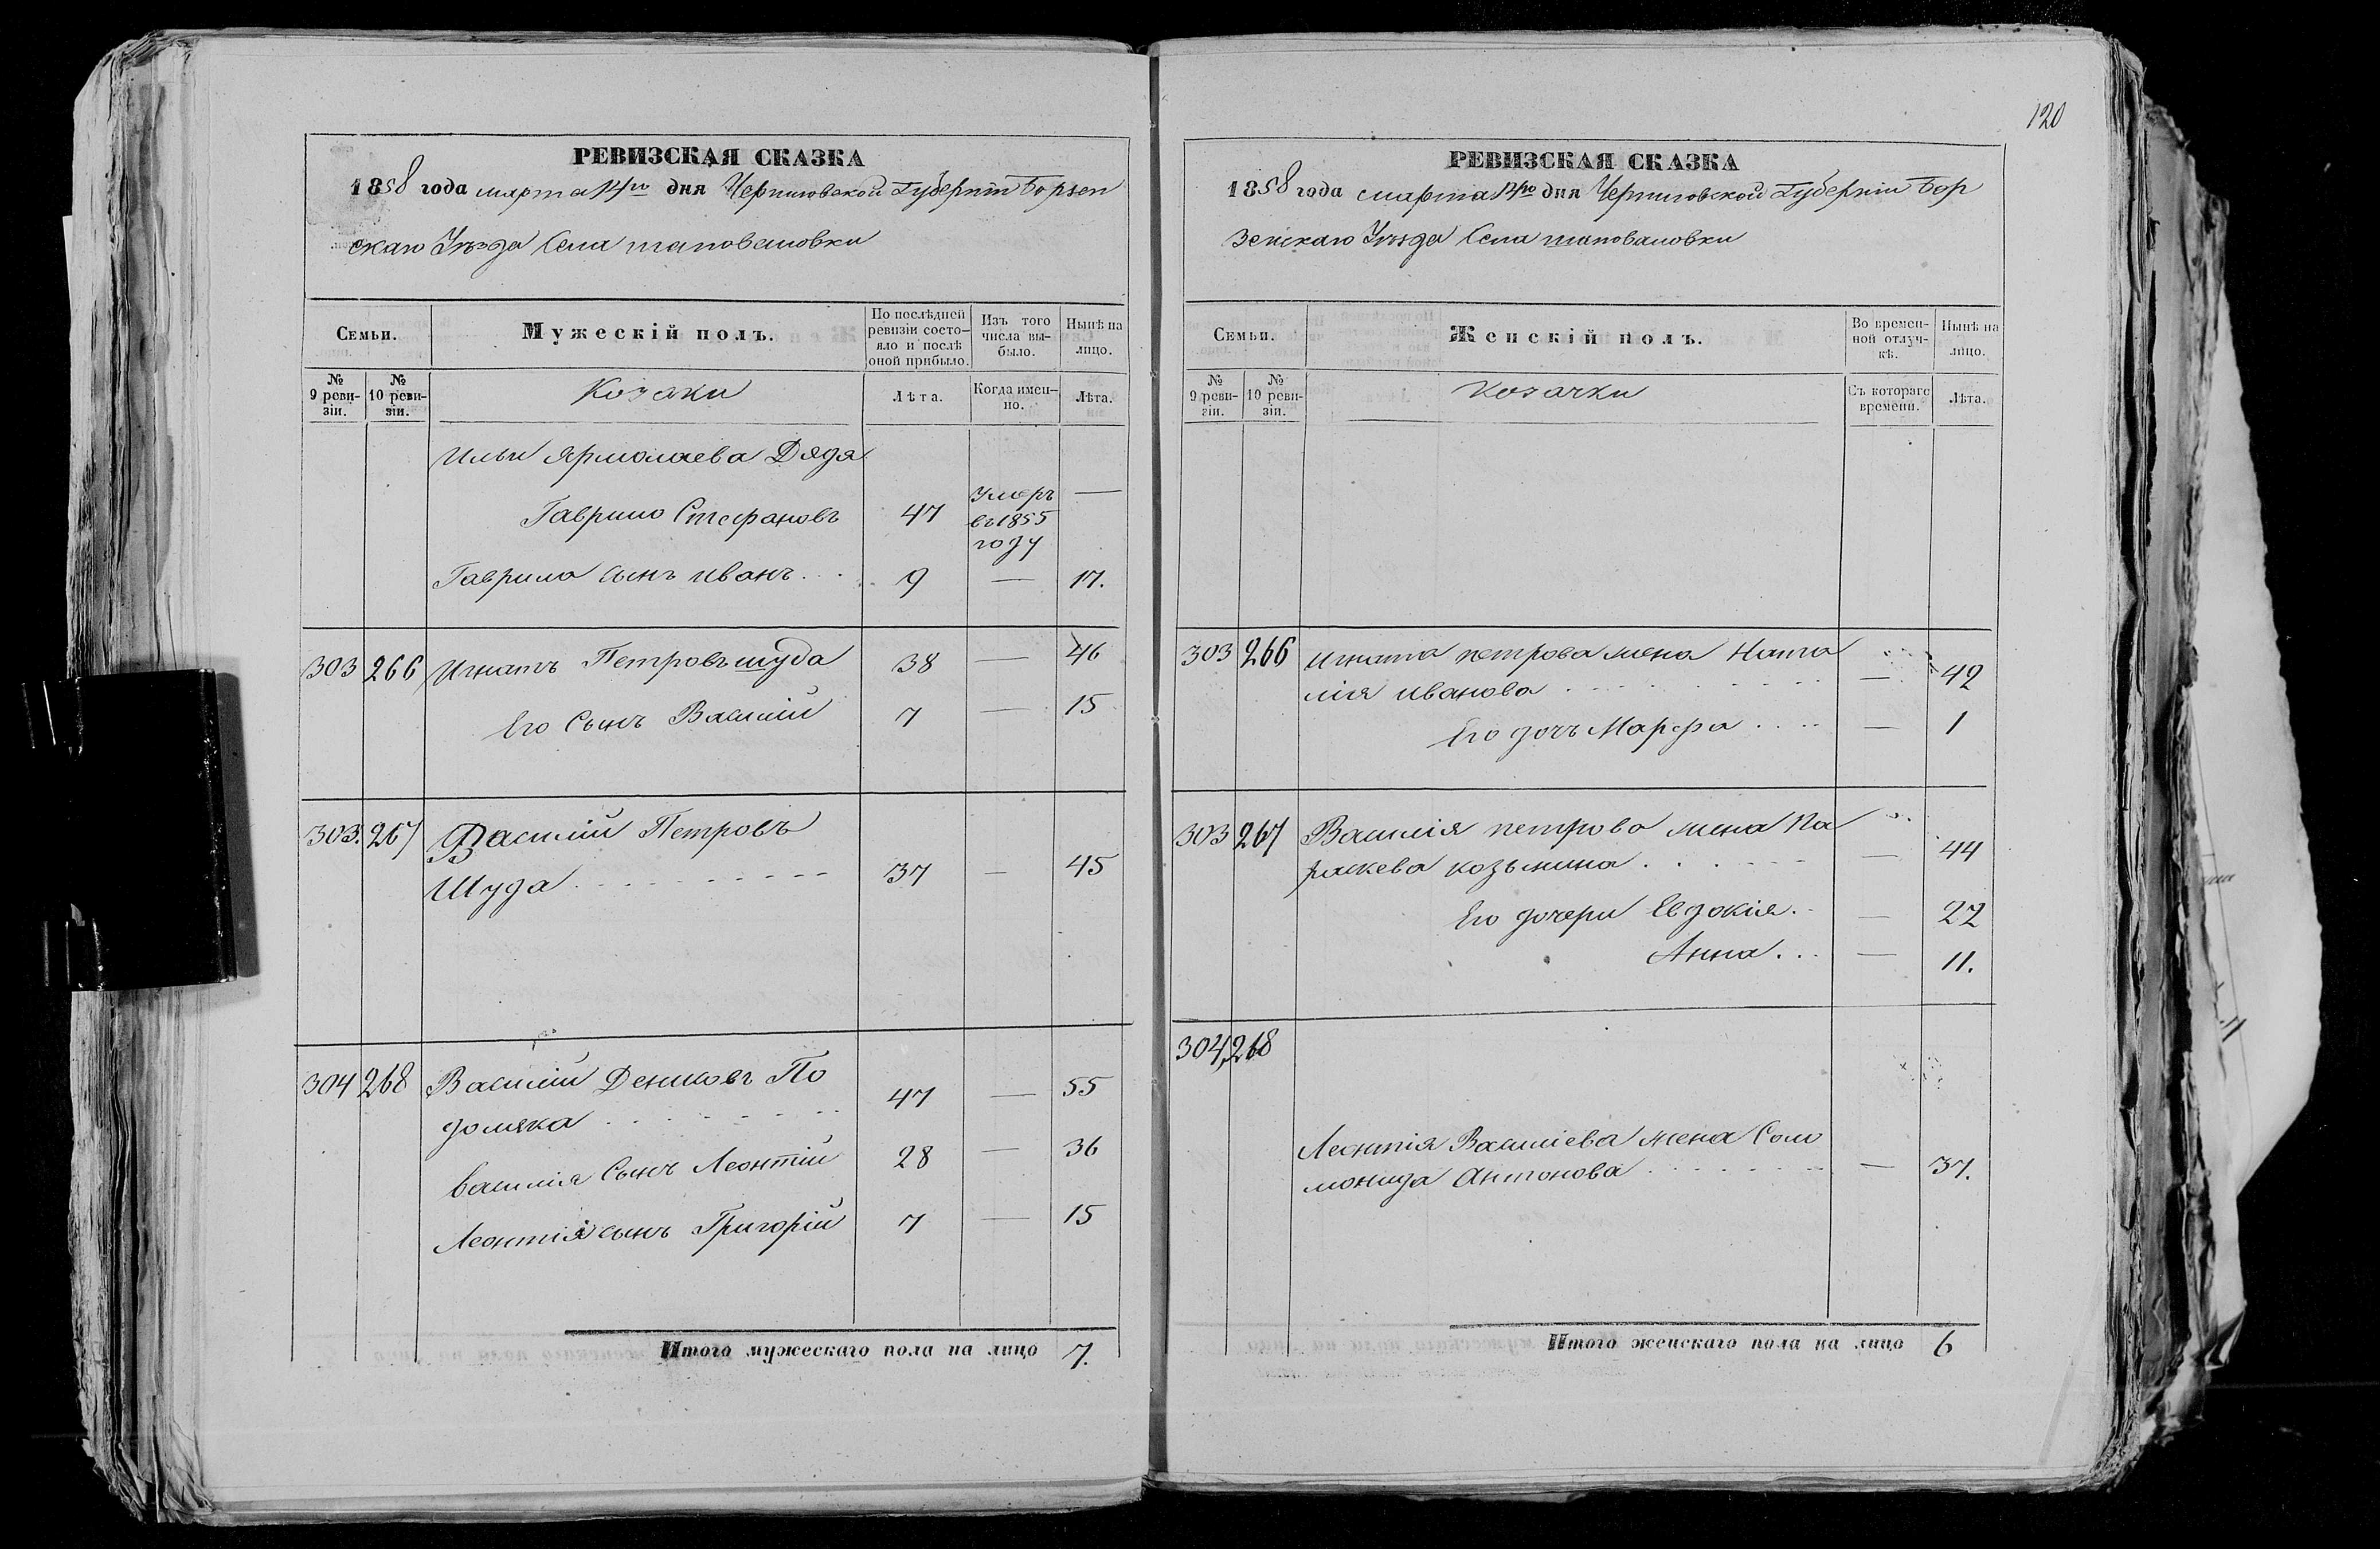 120
РЕВИЗСКАЯ СКАЗКА
1858 года марта 14го дня Черниговской Губерніи Борзен
скаго Уѣзда Села шаповаловки
Семьи.
Мужескій полъ.
По послѣдней ревизіи состо-
яло и послѣ
оной прибыло.
Изъ того
числа вы-
было.
Нынѣ на
лицо.
№
9 реви-
зіи.
№
10 реви-
зіи.
Козаки
Лѣта.
Когда имен-
но.
Лѣта.
Ильи Ярмолаева Дядя
Гаврило Стефановъ 47 умеръ въ 1855 году —
Гаврила сынъ иванъ 9 — 17.
303 266 Игнатъ Петровъ шуда 38 — 46
Его Сынъ Василій 7 — 15
303. 267 Василій Петровъ
Шуда 37 — 45
304 268 Василій Дениковъ По
домяка 47 — 55
василия Сынъ Леонтій 28 — 36
Леонтія сынъ Григорій 7 — 15
Итого мужескаго пола на лицо 7.
РЕВИЗСКАЯ СКАЗКА
1858 года марта 14го дня Черниговской Губерніи Бор
Зенскаго Уѣзда Села шаповаловки
Семьи.
Женскій полъ.
Во времен-
ной отлуч-
кѣ.
Нынѣ на
лицо.
№
9 реви-
зіи.
№
10 реви-
зіи.
Козачки
Съ котораго
времени.
Лѣта.
303 266 Игната петрова жена Ната
лія иванова — 42
Его дочъ Марфа — 1
303 267 Василія петрова жена Па
раскева козьмина — 44
Его дочери Евдокія — 22
Анна — 11.
304, 268
Леонтія Василіева жена Соло
монида Антонова — 37.
Итого женскаго пола на лицо 6